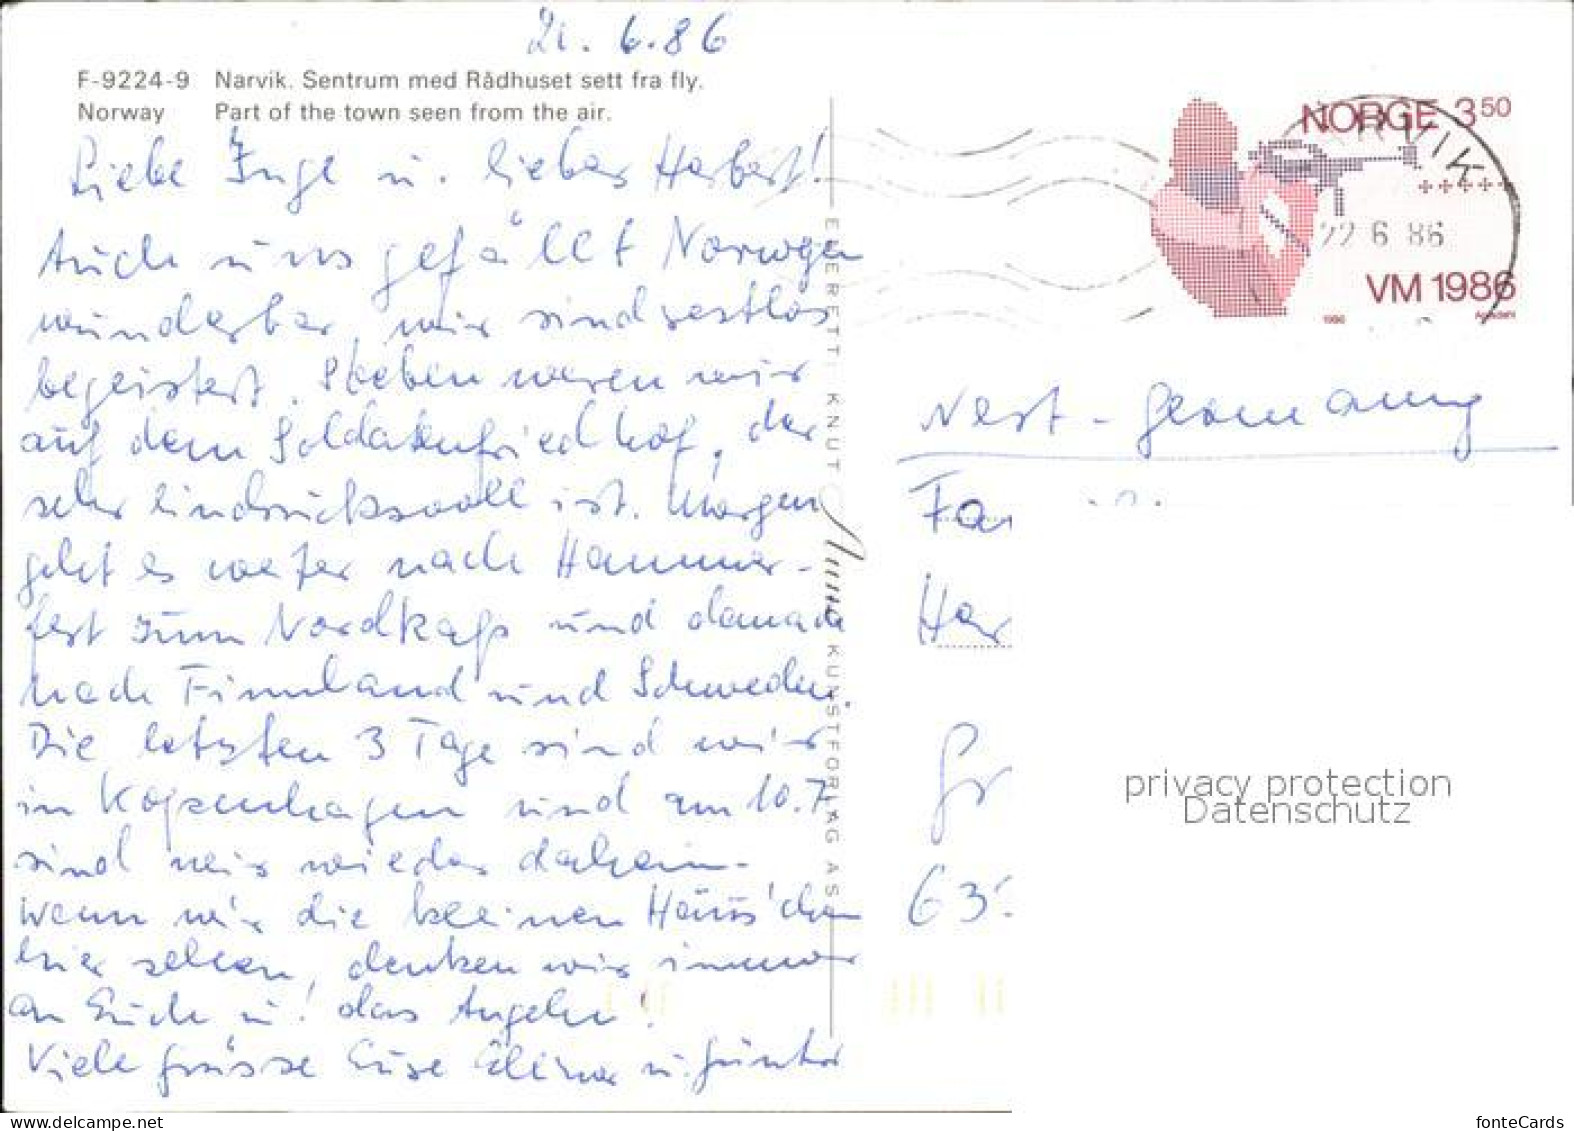 21.6.86
F-9224-9 Narvik. Sentrum med Rådhuset sett fra fly.
Norway Part of the town seen from the air.
Liebe Inge u. lieber Herbert!
Auch uns gefällt Norwegen
wunderbar, wir sind restlos
begeistert. Soeben waren wir
auf dem Soldatenfriedhof, der
sehr eindrucksvoll ist. Morgen
geht es weiter nach Hammer-
fest zum Nordkap und danach
nach Finnland und Schweden.
Die letzten 3 Tage sind wir
in Kopenhagen und am 10.7.
sind wir wieder daheim.
Wenn wir die kleinen Häus'chen
hier sehen, denken wir immer
an Euch u. das Angeln!
Viele Grüsse Eure u. Günter
ENERETT: KNUT Aune KUNSTFORLAG AS
NORGE 3 50
VM 1986
1986
NARVIK
22 6 86
West-Germany
Fa
Her
Gr
63
privacy protection
Datenschutz
fonteCards